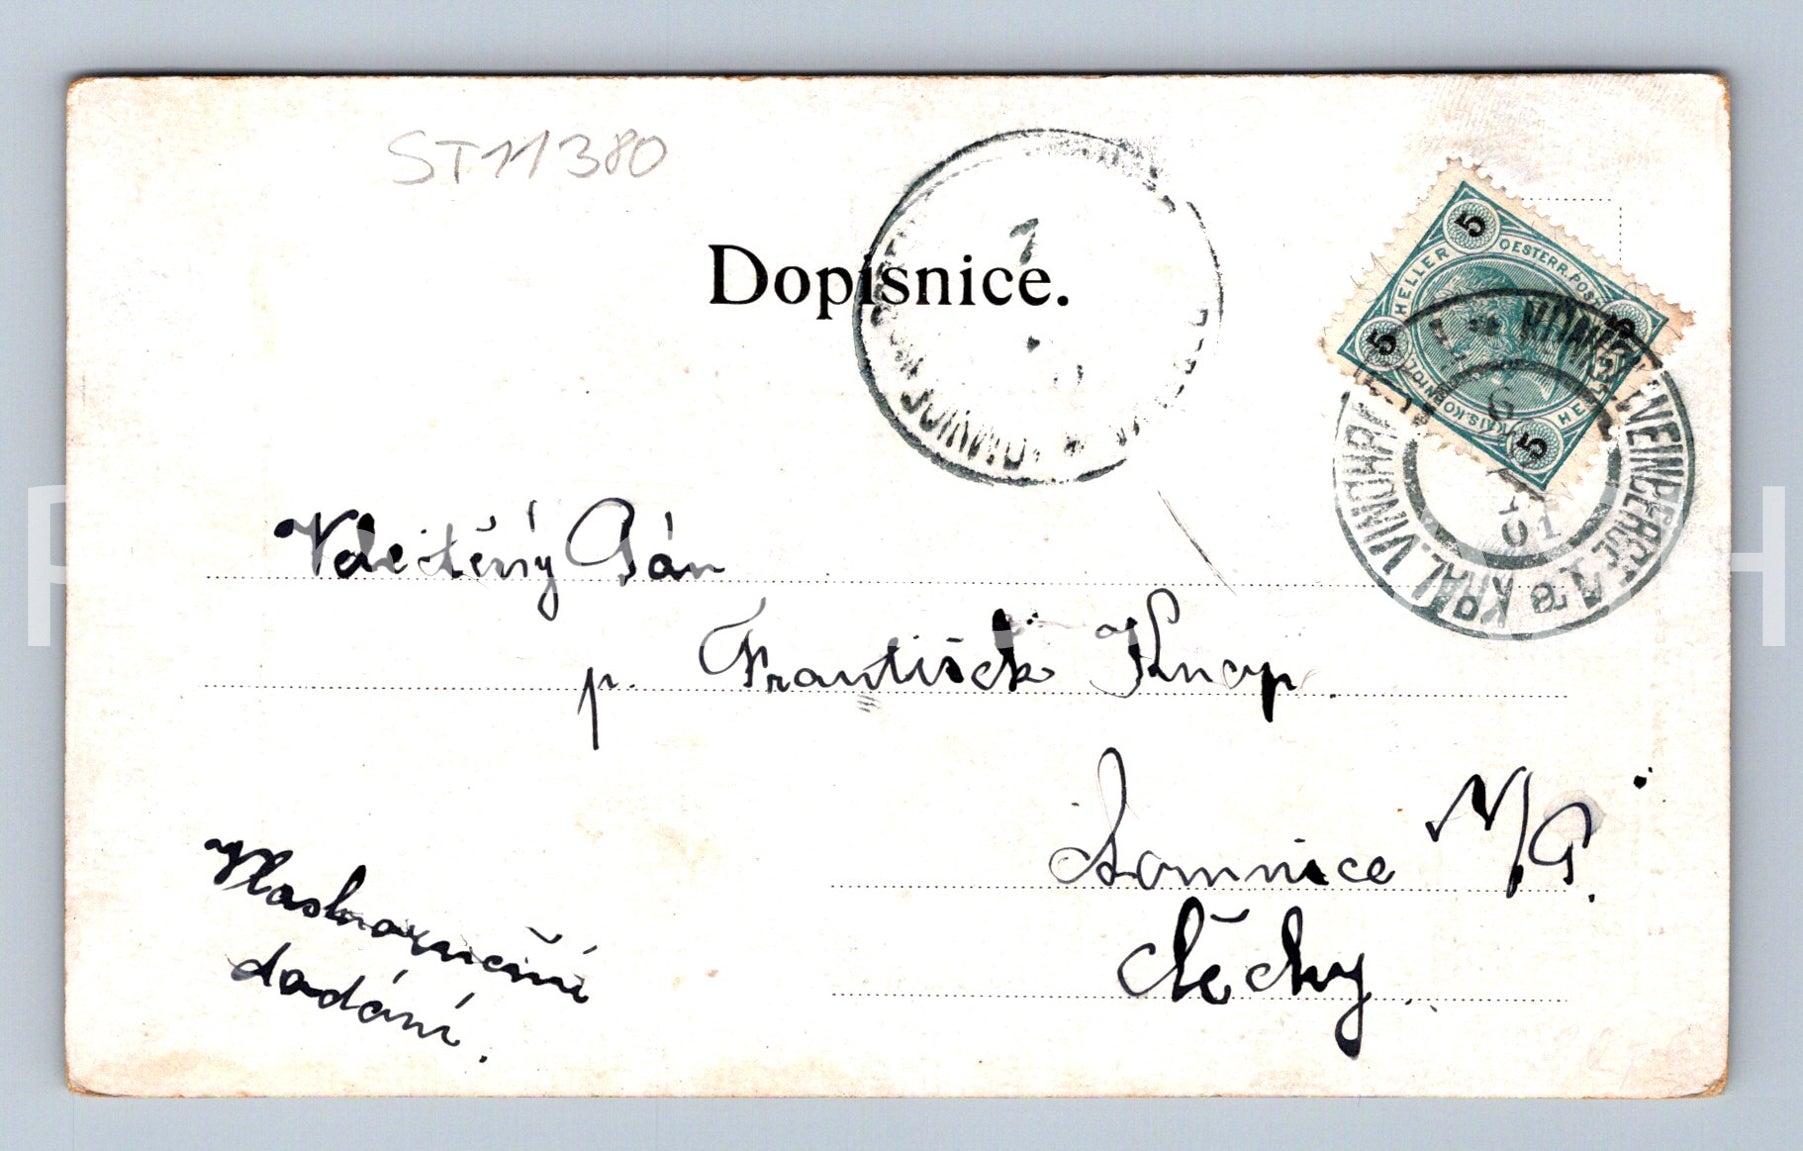 ST11380
Dopisnice.
5 HELLER 5 OESTERR. POST 5
KAIS. KÖNIGL. 5
KRÁL. VINOHRADY KÖNIGL. WEINBERGE 1
01
Velectěný Pán
p. František Knap.
Lomnice N/P.
Čechy
Vlastnoruční
dodání.